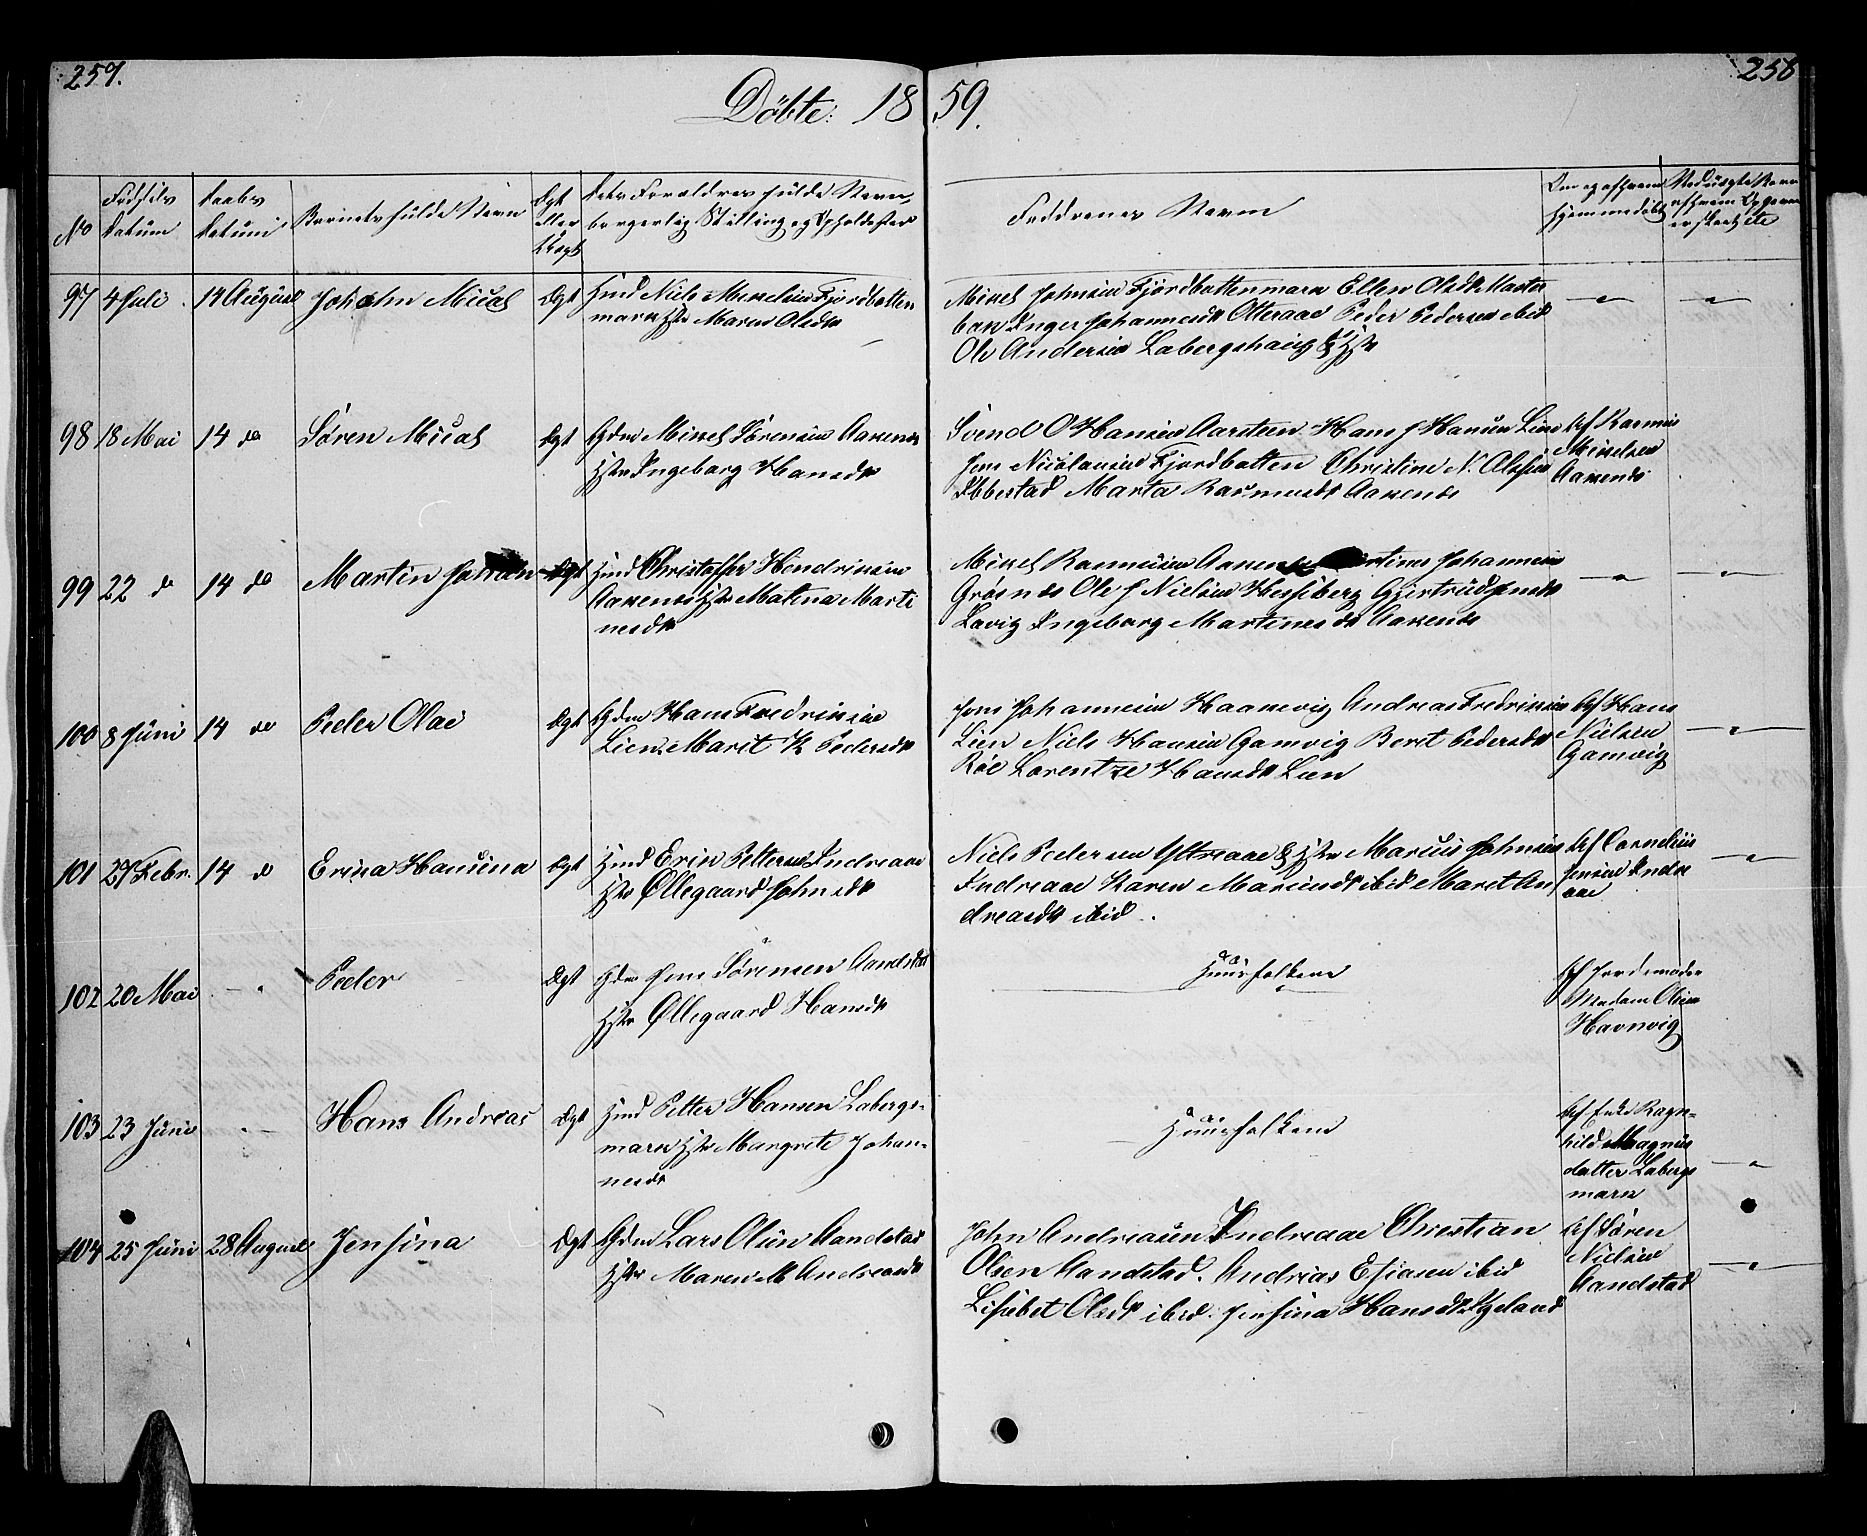 257.
258
Döbte: 18 59.
No
Fødsels Datum
Daabs Datum
Barnets fulde Navn
Ægt eller Uægt
Dets Forældres fulde Navn
borgerlig Stilling og Opholdssted
Faddernes Navne
Om og af hvem
hjemmedøbt
97 4 Juli 14 August Johan Micael Ægt Huusmd Niels Mikelsen Fjordbotten
mark Hstr Maren Olsdtr
Mikel Johnsen Fjordbottenmark Ellen Olsdtr
Inger Johannesdtr Otteraae Peder Pedersen ibid
Ole Andersen Labergshaug & Hstr
98 18 Mai 14 do Søren Micael Ægt Gdm Mikel Sørensen Aakenes
Hstr Ingeborg Hansdtr
Svend O Hansen Aarsteen Hans J Hansen Lien
Jens Nicolausen Fjordbotten Christine N. Olsen
Ibbestad Marta Rasmusdtr Aakenes
Af Rasmus
Mikelsen
Aakenes
99 22 d 14 do Martin Johan Ægt Huusmd Christoffer Hendriksen
Aakenes Hstr Malena Marti
nesdtr
Mikel Rasmusen Aakenes Johannesen
Grøsnes Ole J Nielsen Hessberg Gjertrud Jensdtr
Lavig Ingeborg Martinesdtr Aakenes
100 8 Juni 14 do Peder Olai Ægt Gdm Hans Fredriksen
Lien Marit K Pedersdtr
Jens Johannesen Haarvig Andreas Fredriksen
Lien Niels Hansen Gamvig Berit Pedersdtr
Røe Lorentze Hansdtr Lien
Af Hans
Nielsen
Gamvig
101 27 Febr. 14 d Erika Hansina Ægt Huusmd Erik Pettersen Indreaae
Hstr Øllegaard Johnsdtr
Niels Pedersen Yttreaae & Hstr Marcus Johnsen
Indreaae Karen Marcusdtr ibid Maret An
dreasdtr ibid.
Af Cornelius
Jensen Indre
aae
102 20 Mai - " Peder Ægt Gdm Jens Sørensen Aandstad
Hstr Øllegaard Hansdtr
Huusfolkene
Af Jordemoder
Madam Olsen
Havnvig
103 23 Juni " - Hans Andreas Ægt Huusmd Petter Hansen Labergs-
mark Hstr Margrete Johan-
nesdtr
Huusfolkene
Af Enke Ragn-
hild Magnus
datter Labergs
mark
104 25 Juni 28 August Jensina Ægt Gdm Lars Olsen Aandstad
Hstr Maren M Andreasdtr
John Andreasen Indreaae Christian
Olsen Aandstad. Andrias Esiasen ibid
Lisabet Olsdtr ibid. Jensina Hansdtr Ygeland
Af Søren
Nielsen
Aandstad